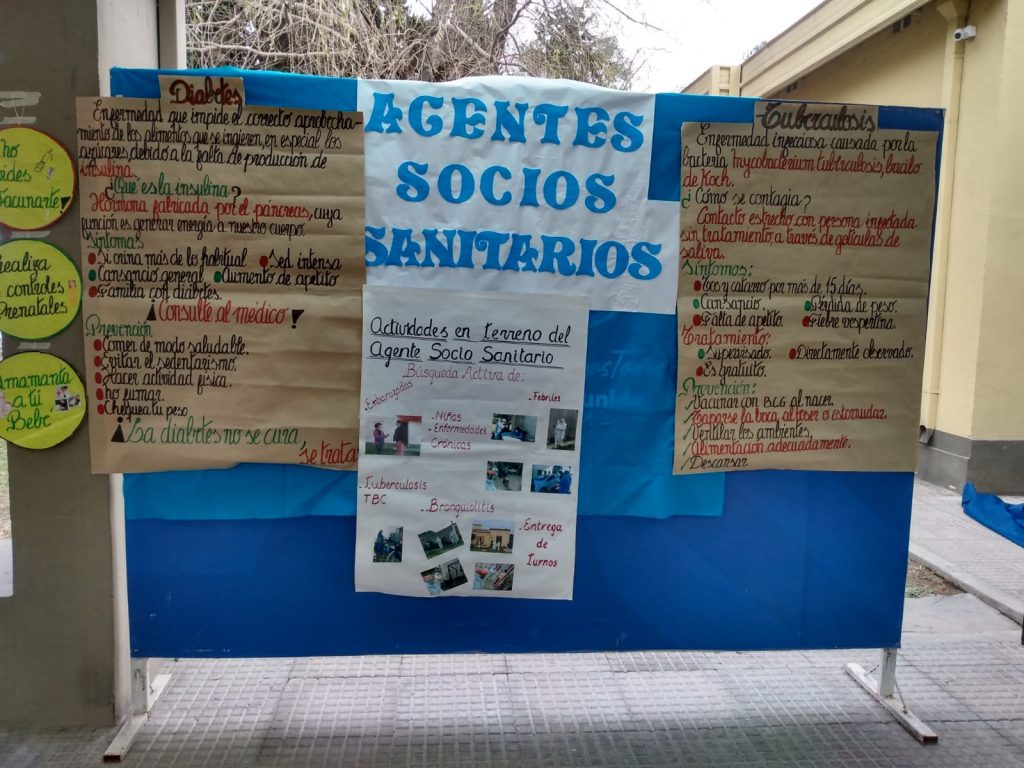 no
Vacunarte!
Realiza
controles
Prenatales
Amamanta
a tú
Bebé
Diabetes
Enfermedad que impide el correcto aprobecha-
miento de los alimentos que se ingieren, en especial los
azúcares, debido a la falta de producción de
insulina.
¿Que es la insulina?
Hormona fabricada por el páncreas, cuya
función es generar energía a nuestro cuerpo.
Sintomas
Si orina más de lo habitual
Sed intensa
Cansancio general
Aumento de apetito
Familia con diabetes.
Consulte al médico!
Prevención
Comer de modo saludable.
Evitar el sedentarismo.
Hacer actividad física.
no fumar.
Chequea tu peso
¡La diabetes no se cura,
se trata
AGENTES
SOCIOS
SANITARIOS
Actividades en terreno del
Agente Socio Sanitario
Búsqueda Activa de:
-Embarazadas
-Febriles
-Niños
-Enfermedades
Crónicas
-Tuberculosis
TBC
-Bronquiolitis
-Entrega
de
Turnos
Tuberculosis
Enfermedad infecciosa causada por la
bacteria Mycobacterium tubtrculosis, bacilo
de Koch.
¿Cómo se contagia?
Contacto estrecho con persona infectada
sin tratamiento, a través de gotículas de
saliva.
Sintomas:
Tos y catarro por más de 15 días,
Cansancio
Pérdida de peso.
Falta de apetito.
Fiebre vespertina.
Tratamiento:
Supervisado.
Directamente observado.
Es gratuito.
Prevención:
Vacunar con BCG al nacer.
Taparse la boca, al toser o estornudar.
Ventilar los ambientes,
Alimentación adecuadamente.
Descansar.